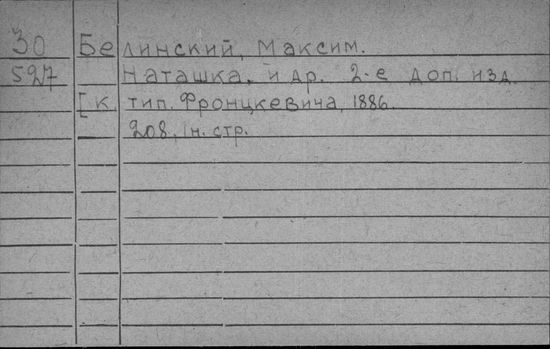 30 Белинский, Максим.
527 Наташка, и др. 2-е доп. изд.
[К. тип. Фронцкевича, 1886.
208, 1н. стр.